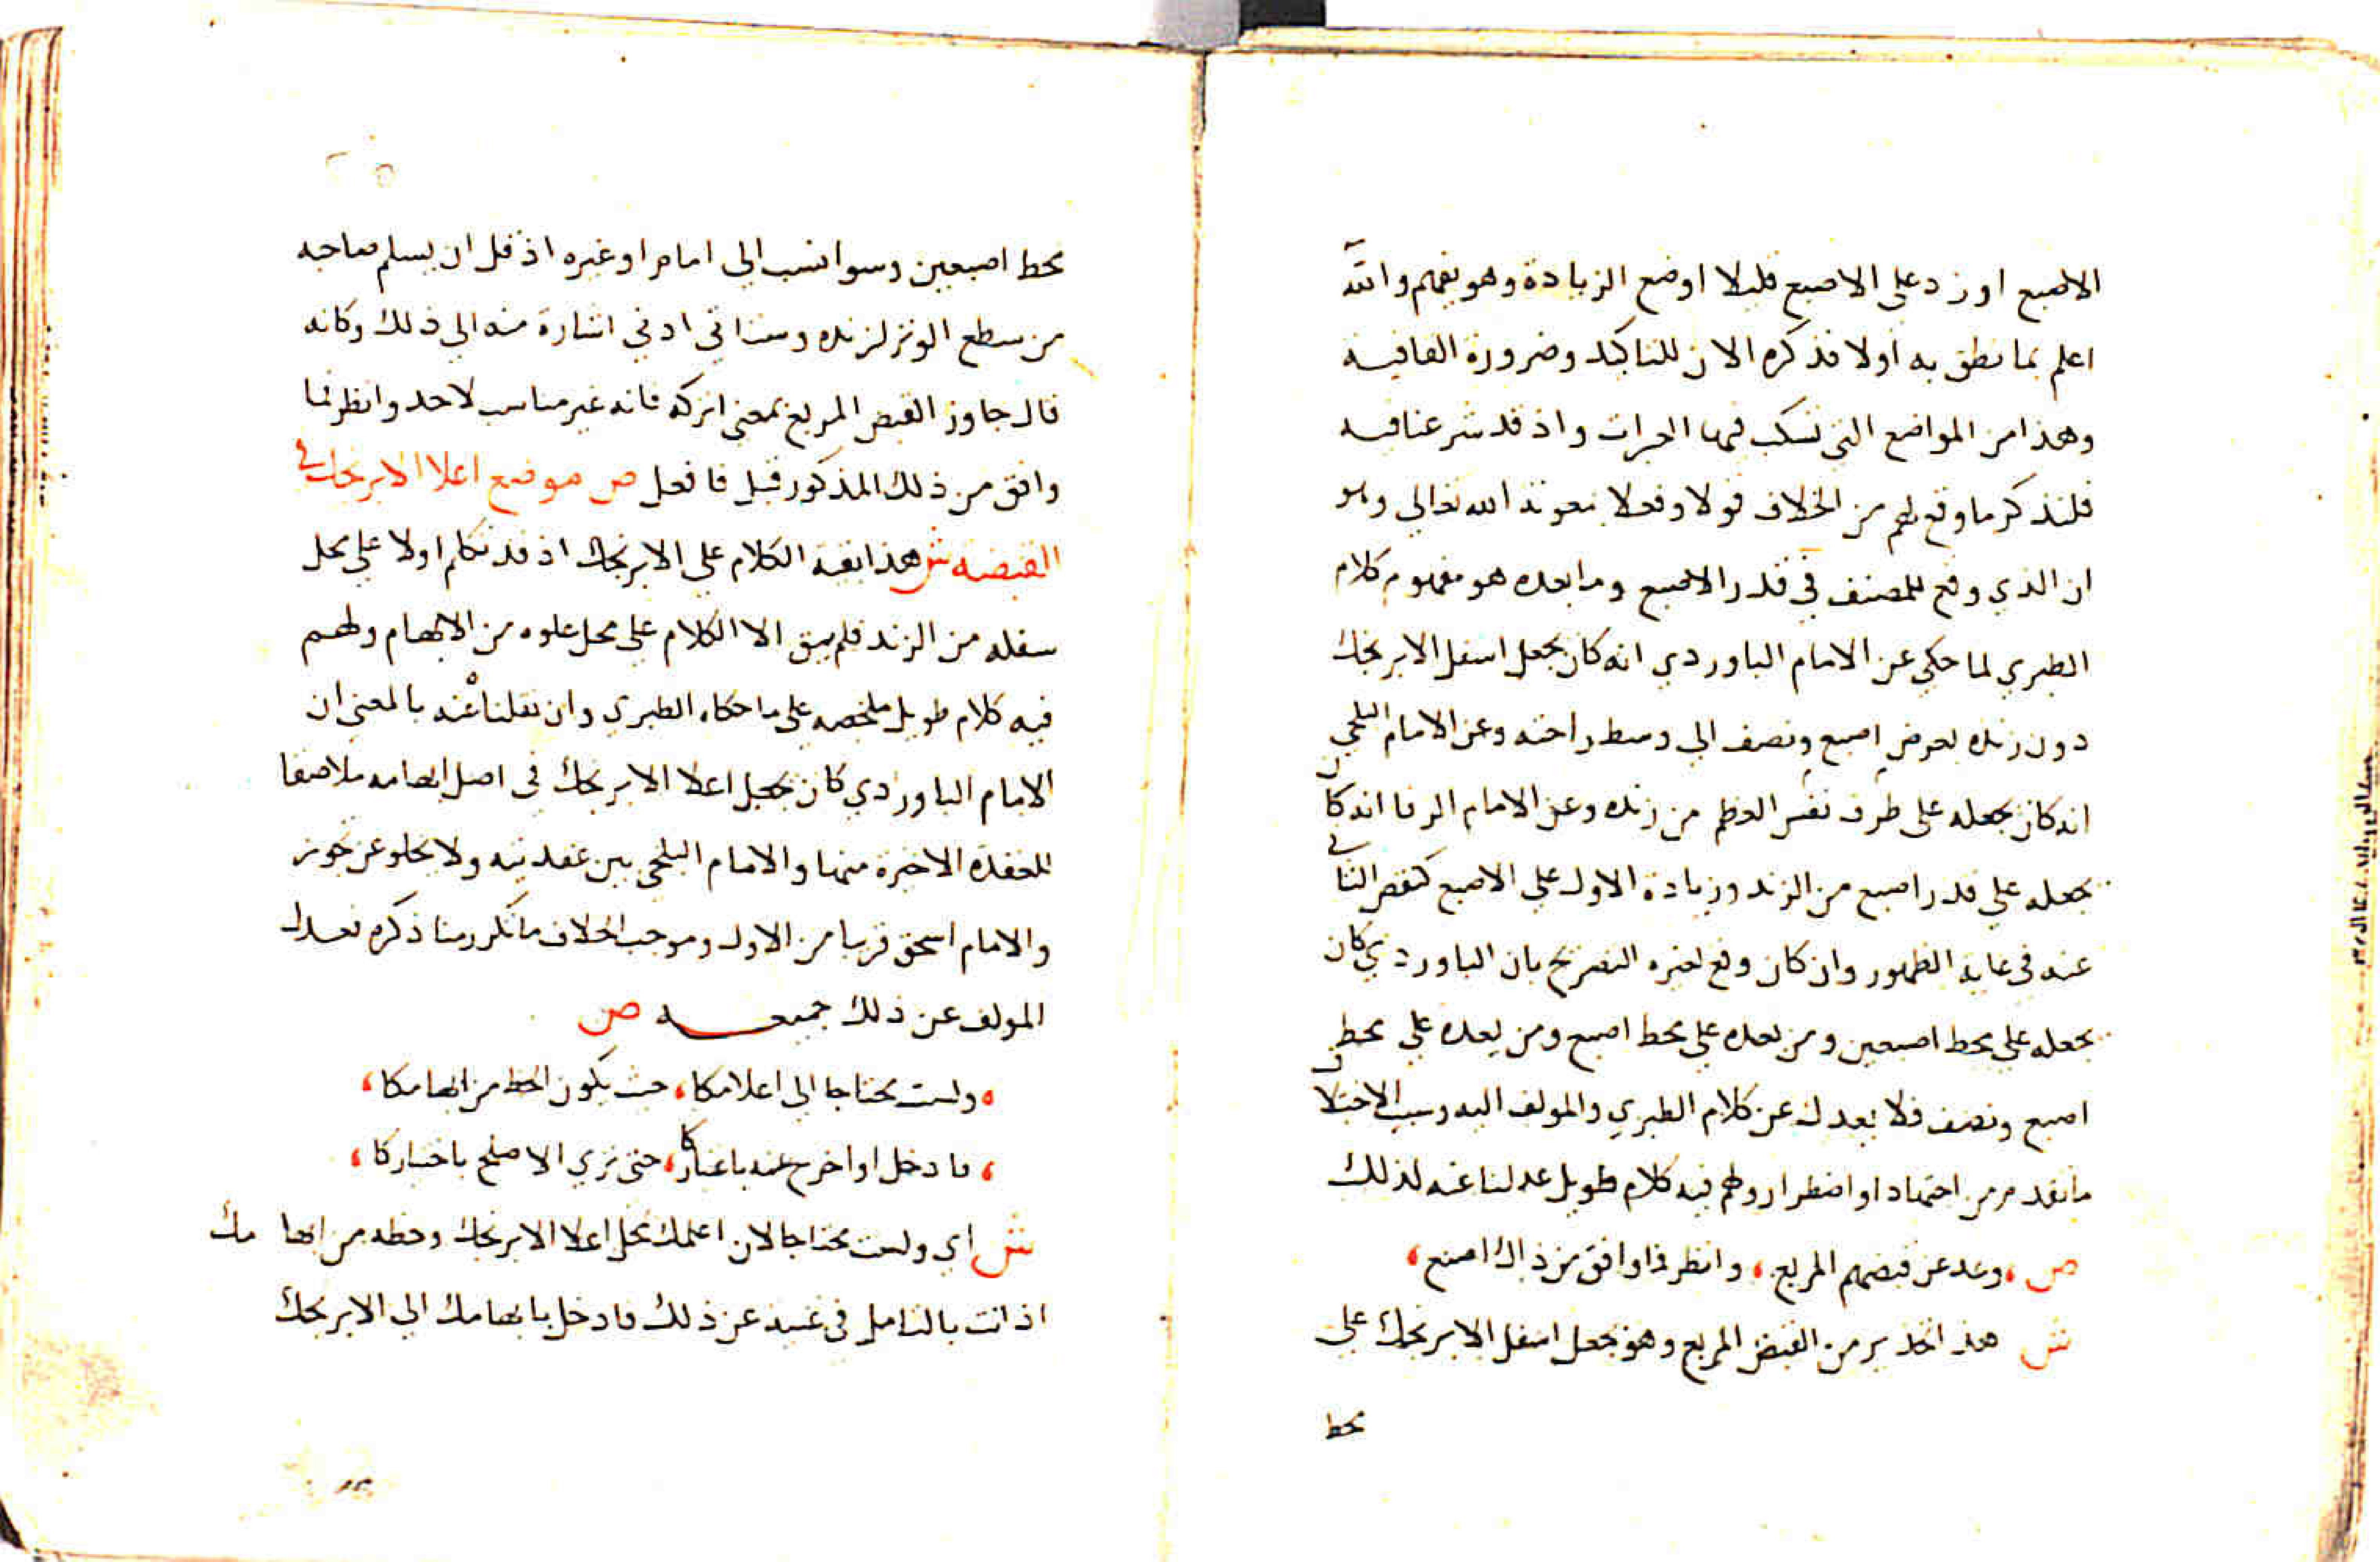 الاصبع اوزد على الاصبع قليلا اوضع الزيادة وهو يفهم والله
اعلم بما نطق به اولا فذكره الان للتاكيد وضرورة القافيه
وهذا من المواضع التي تسكب فيها العبرات واذ قد شرعنا فيه
فلنذكر ما وقع لهم من الخلاف قولا وفعلا بمعونة الله تعالى وهو
ان الذي وقع للمصنف في قدر الاصبع وما بعده هو مفهوم كلام
الطبري لما حكي عن الامام الباوردي انه كان يجعل اسفل الابرنجك
دون زنده بعرض اصبع ونصف الي وسط راحته وعن الامام البلخي
انه كان يجعله على طرف نفس العظم من زنده وعن الامام الرفا انه كان
يجعله على قدر اصبع من الزند وزيادة الاول على الاصبع كنقص الثاني
عنه في غاية الظهور وان كان وقع لغيره التصريح بان الباوردي كان
يجعله على محط اصبعين ومن بعده على محط اصبع ومن بعده على محط
اصبع ونصف فلا يعدل عن كلام الطبري والمولف اليه وسبب الاختلاف
ما تقدم من اجتهاد او اضطرار ولهم فيه كلام طويل عدلنا عنه لذلك
ص ، وعد عن قبضهم المربع ، وانظر فما وافق من ذاك اصنع ،
ش هذا تحذير من القبض المربع وهو يجعل اسفل الابرنجك على
محط
محط اصبعين وسوا نسب الي امام او غيره اذ قل ان يسلم صاحبه
من سطع الوتر لزنده وسياتي ادني اشارة منه الى ذلك وكانه
قال جاوز القبض المربع بمعنى اتركه فانه غير مناسب لاحد وانظر لما
وافق من ذلك المذكور قبل فافعل ص موضع اعلا الابرنجك في
القبضه ش هذا بقية الكلام على الابرنجك اذ قد تكلم اولا على محل
سفله من الزند فلم يبق الا الكلام على محل علوه من الابهام ولهم
فيه كلام طويل ملخصه على ما حكاه الطبري وان نقلنا عنه بالمعنى ان
الامام الباوردي كان يجعل اعلا الابرنجك في اصل ابهامه ملاصقا
للعقدة الاخيرة منها والامام البلخي بين عقدتيه ولا يخلو عن تجوز
والامام اسحق قريبا من الاول وموجب الخلاف ما تكرر منا ذكره فعدل
المولف عن ذلك جميعه ص
، ولست محتاجا الي اعلامكا ، حيث يكون الحظ من ابهامكا ،
، فادخل او اخرج عنه باعتباركا ، حتى تري الاصلح باختياركا ،
ش اي ولست محتاجا لان اعلمك بمحل اعلا الابرنجك وحظه من ابهامك
اذ انت بالتامل في غنيه عن ذلك فادخل بابهامك الي الابرنجك